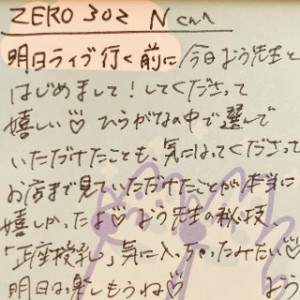 ZERO 302 Nくん
明日ライブ行く前に今日よう先生と
はじめまして!してくださって
嬉しい♡ ひらがなの中で選んで
いただけたことも、気になってくださって
お店まで見ていただけたことが本当に
嬉しかったよ♡ よう先生の秘技、
「正座授乳」気に入っちゃったみたい♡
明日は楽しもうね♡ よう